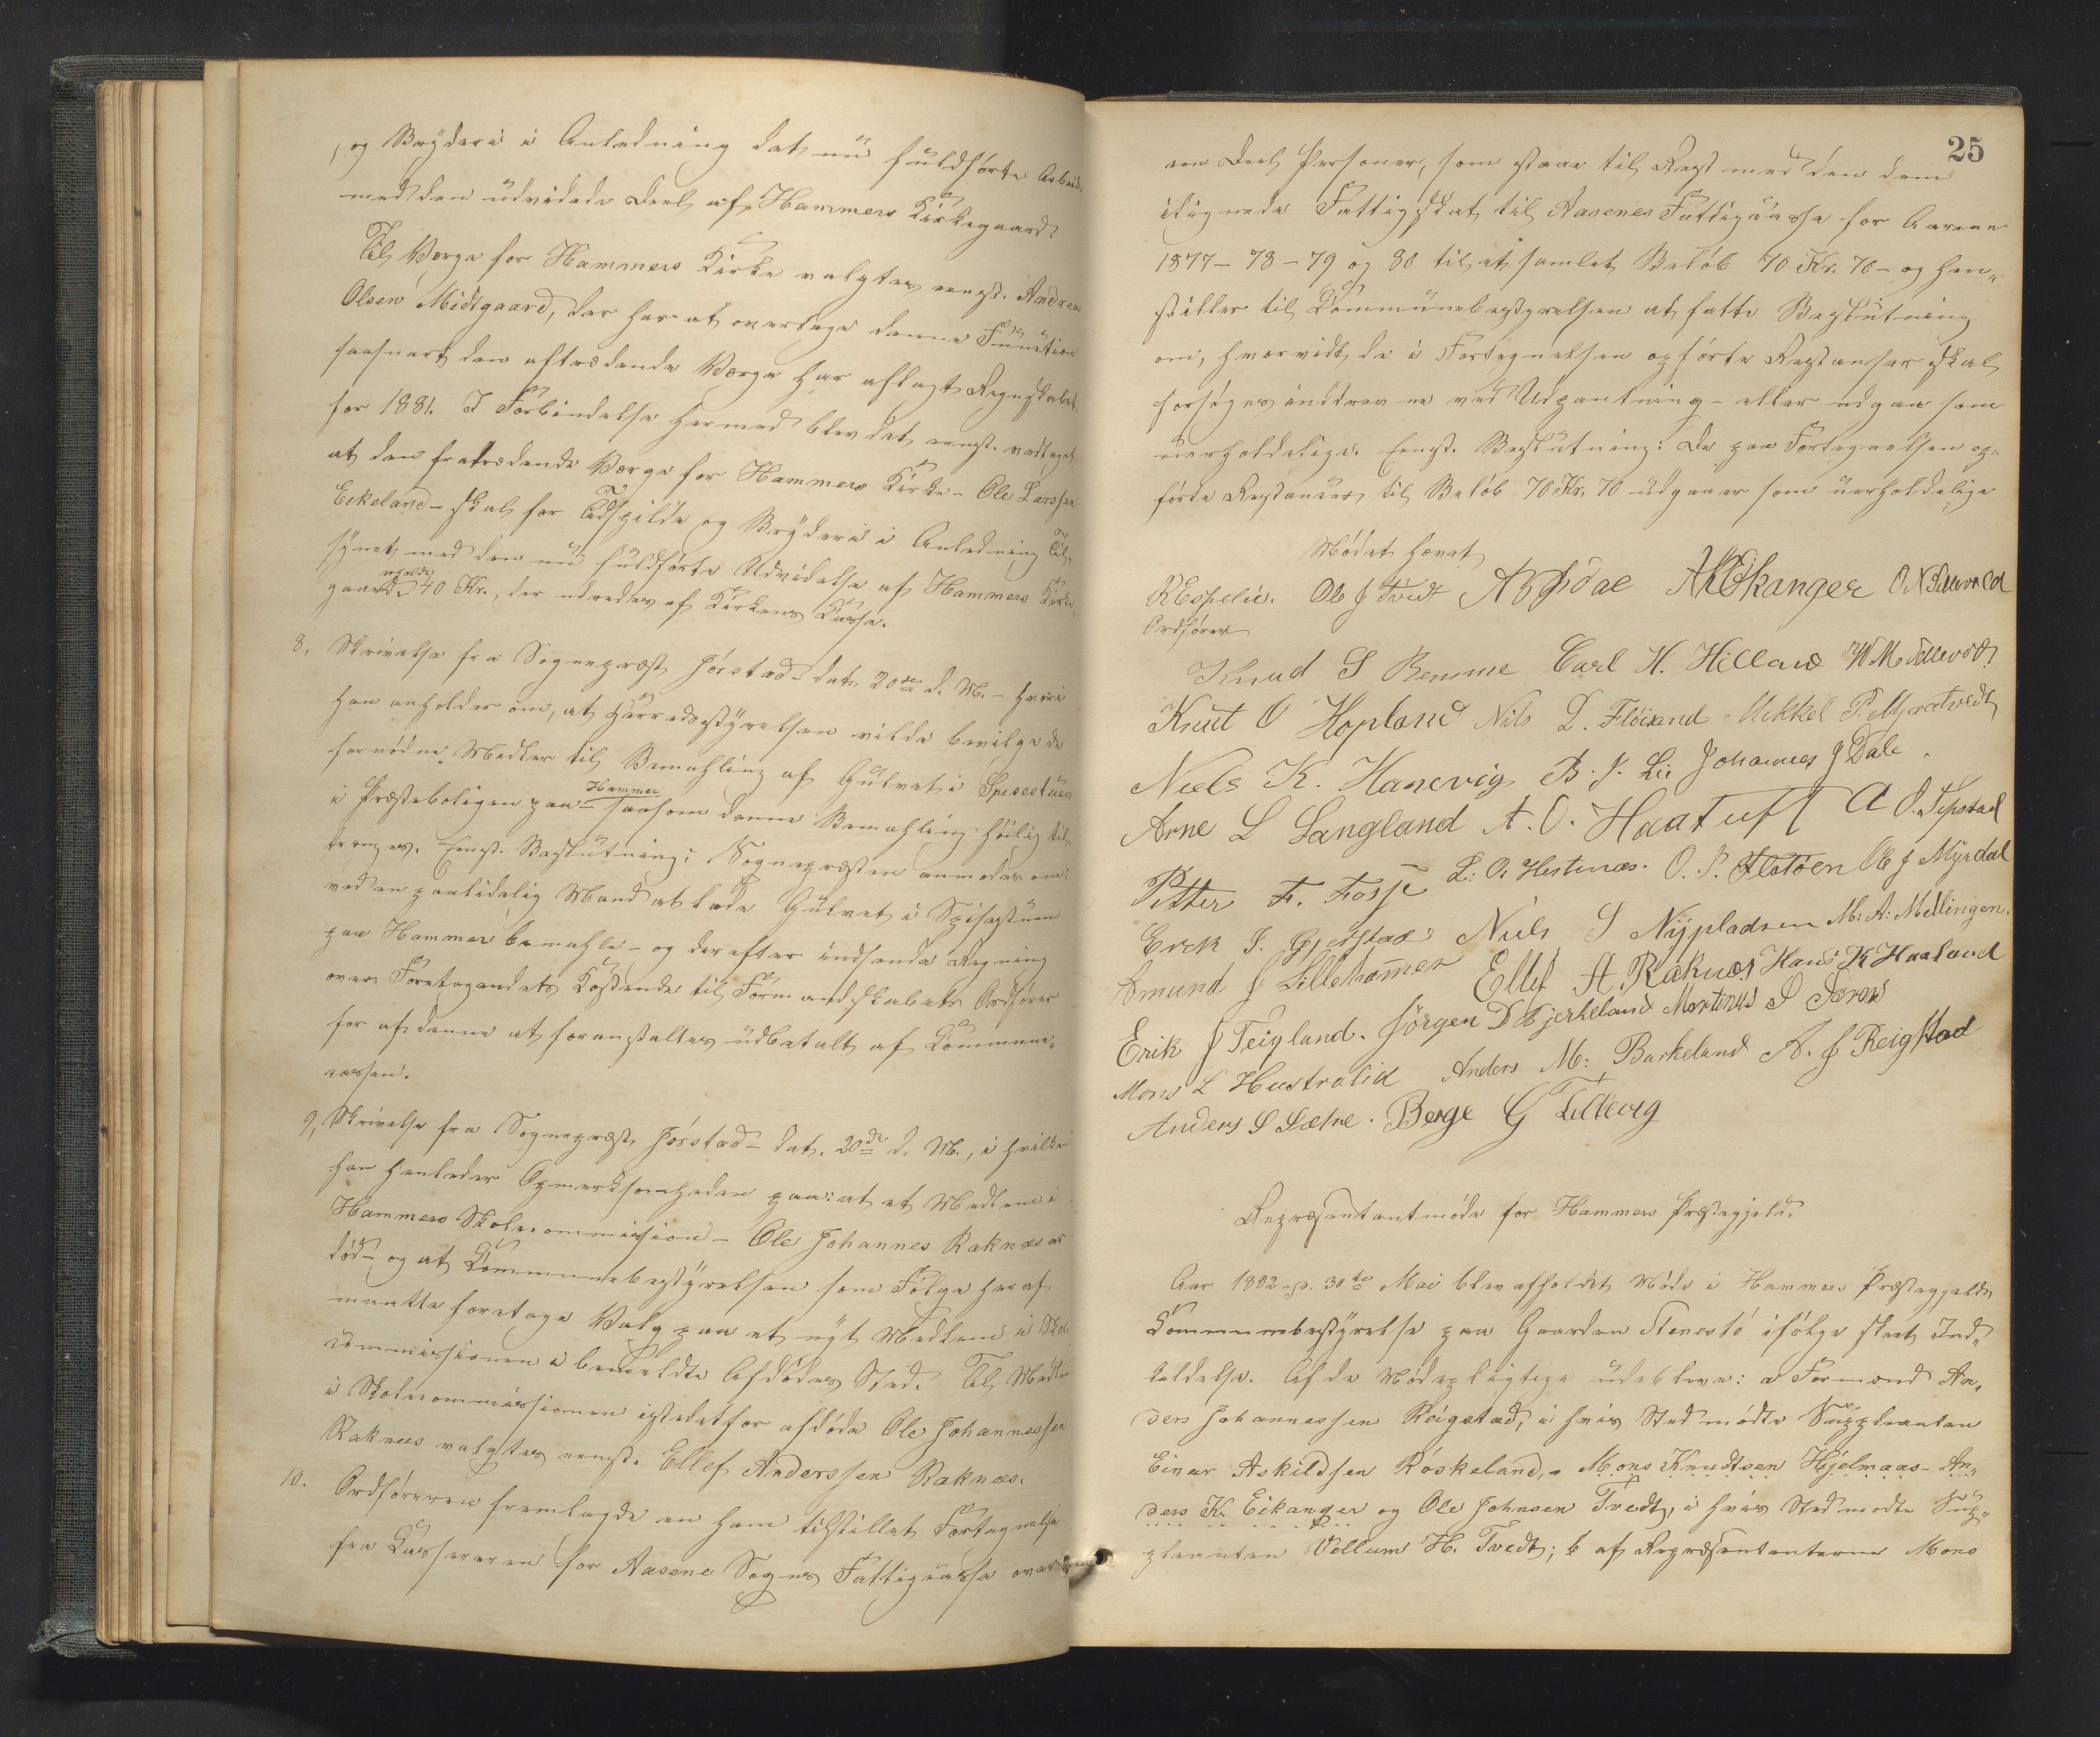 og Bryderi i Anledning det nu fuldførte Arbeide
med den udvidede Deel af Hammers Kirkegaard.
Til Værge for Hammers Kirke valgtes eenst. Andreas
Olsen Midtgaard, der har at overtage denne Function
saasnart den aftrædende Værge har aflagt Regnskabet
for 1881. I Forbindelse hermed blev det eenst. vedtaget
at den fratrædende Værge for Hammers Kirke – Ole Larssen
Eekeland – skal for Tidspilde og Bryderi i Anledning Til-
synet med den nu fuldførte Udvidelse af Hammers Kirke-
gaard erholde 40 Kr., der udredes af Kirkens Kasse.
8, Skrivelse fra Sognepræst Jørstad – dat. 20de d. M. – hvori
han anholder om, at Herredsstyrelsen vilde bevilge de
fornødne Midler til Bemahling af Gulvet i Spisestuen
i Præsteboligen paa Hammer saasom denne Bemahling høilig til-
trænges. Eenst. Beslutning: Sognepræsten anmodes om
ved en paalidelig Mand at lade Gulvet i Spisestuen
paa Hammer bemahle – og derefter indsende Regning
over Foretagendets Kostende til Formandskabets Ordfører
for af denne at foranstaltes udbetalt af Kommune-
cassen.
9, Skrivelse fra Sognepræst Jørstad – dat. 20de d. M., i hvilken
han henleder Opmerksomheden paa: at et Medlem i
Hammers Skolecommission – Ole Johannes Raknes er
død – og at Kommunebestyrelsen som Følge heraf
maatte foretage Valg paa et nyt Medlem i Skole-
commissionen i bemeldte Afdødes Sted. Til Medlem
i Skolecommissionen istedetfor afdøde Ole Johannessen
Raknees valgtes eenst. Ellef Anderssen Raknes.
10. Ordføreren fremlagde en ham tilstillet Fortegnelse
fra Kassereren for Aasene Sogns Fattigcasse over
25
een Deel Personer, som staar til Rest med den dem
ilignede Fattigskat til Aasenes Fattigcasse for Aarene
1877 – 78 – 79 og 80 til et samlet Beløb 70 Kr. 70 – og hen-
stiller til Kommunebestyrelsen at fatte Beslutning
om, hvorvidt de i Fortegnelsen opførte Restanser skal
forsøges inddrevne ved Udpantning – eller udgaa som
uerholdelige. Eenst. Beslutning: De paa Fortegnelsen op-
førte Restancer til Beløb 70 Kr. 70 udgaaer som uerholdelige
Mødet hævet
R Espelie. Ole J Tvedt A Isdal A K Eikanger
Ordfører
Knud S Remme Carl H. Hilland
Knut O Hopland Nils L. Flöisand Mikkel P. Mjaatvedt
Niels K. Hanevig B. J. Lie Johannes J Dale.
Arne L Langland A. O. Haatuft A O. Sepstad
Petter F. Fosse L. O. Hestenes. O. P. Flatöen Ole J Myrdal
Erek J. Gjerstad Niels S Nypladsen M. A. Mellingen.
Amund J Lillehamer Ellef A. Raknes Hans K Haaland
Erik J Teigland. Jörgen D Bjerkeland Martinus
Mons L Hustvalid Anders M: Burkeland A. J Reigstad
Anders S Sætre. Berge G Tellevig
Repræsentantmøde for Hammers Præstegjeld.
Aar 1882 d. 30te Mai blev afholdt Møde i Hammers Præstegjelds
Kommunebestyrelse paa Gaarden Stenestø ifølge skeet Ind-
kaldelse. Af de Mødepligtige udebleve: a Formænd An-
ders Johannessen Reigstad, i hvis Sted mødte Suppleanten
Einar Askildsen Röskeland, – Mons Knudtsen Hjelmaas – An-
ders K. Eikanger og Ole Johnsen Tvedt, i hvis Sted mødte Sup-
pleanten Vellum H. Tvedt; b af Repræsentanterne Mons